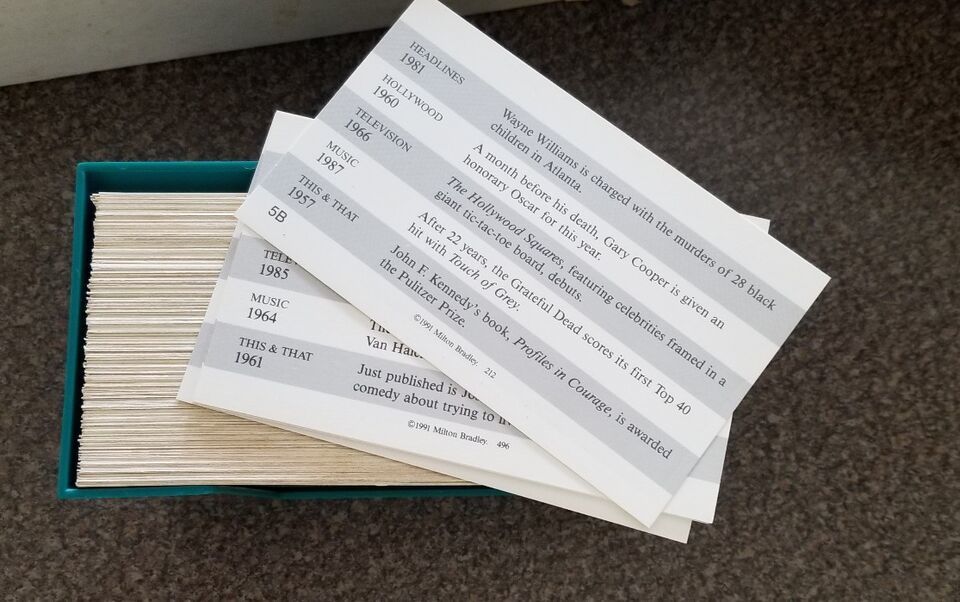 HEADLINES
1981
Wayne Williams is charged with the murders of 28 black
children in Atlanta.
HOLLYWOOD
1960
A month before his death, Gary Cooper is given an
honorary Oscar for this year.
TELEVISION
1966
The Hollywood Squares, featuring celebrities framed in a
giant tic-tac-toe board, debuts.
MUSIC
1987
After 22 years, the Grateful Dead scores its first Top 40
hit with Touch of Grey.
THIS & THAT
1957
John F. Kennedy's book, Profiles in Courage, is awarded
the Pulitzer Prize.
5B
©1991 Milton Bradley. 212
TELE
1985
MUSIC
1964
Van
THIS & THAT
1961
Just published is
comedy about trying to
©1991 Milton Bradley. 496